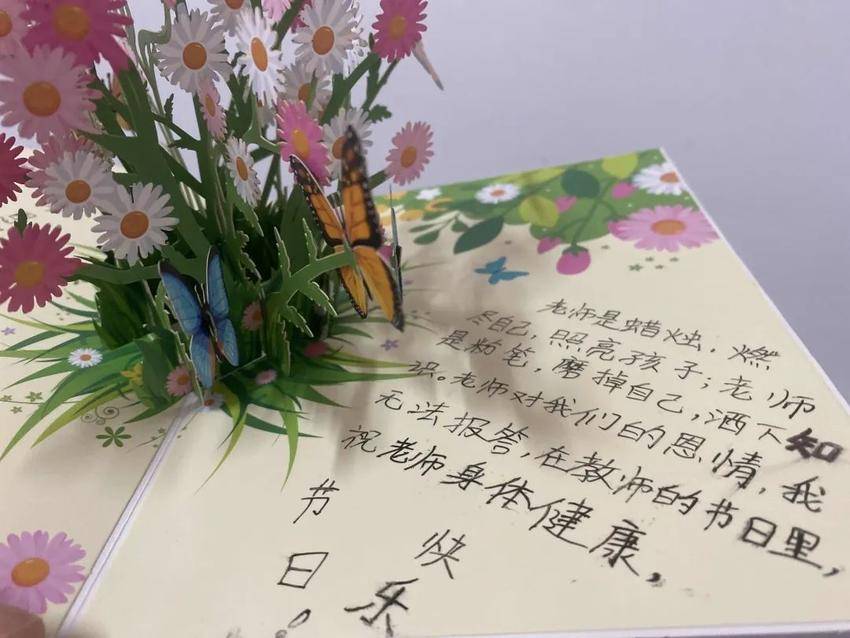 老师是蜡烛，燃
尽自己，照亮孩子；老师
是粉笔，磨掉自己，洒下知
识。老师对我们的恩情，我
无法报答，在教师的节日里，
祝老师身体健康，
节日！
快乐